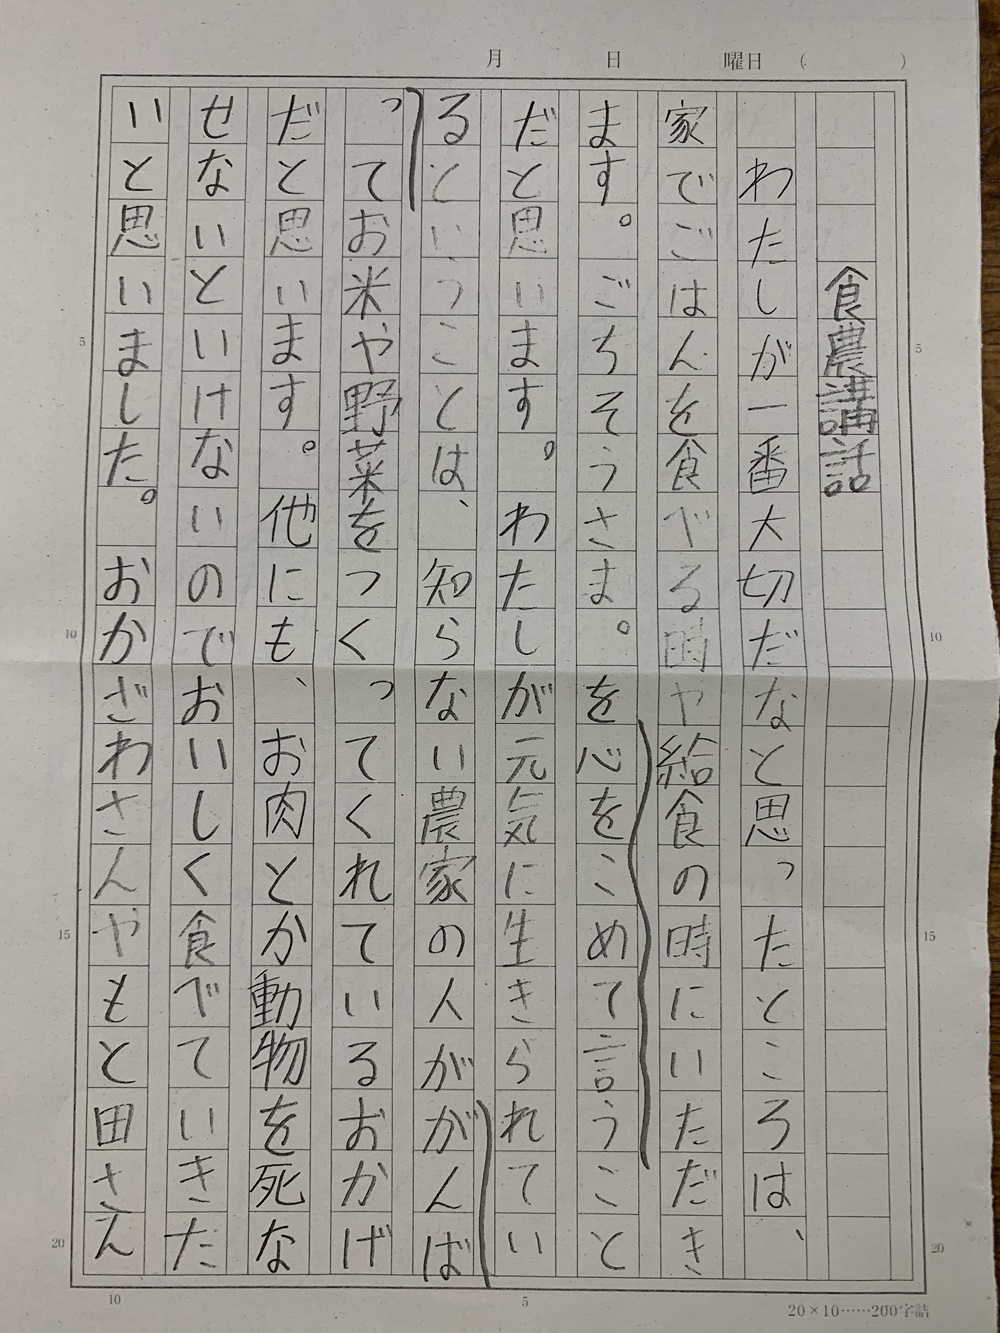 月 日 曜日 ( )
食農講話
わたしが一番大切だなと思ったところは、
家でごはんを食べる時や給食の時にいただき
ます。ごちそうさま。を心をこめて言うこと
だと思います。わたしが元気に生きられてい
るということは、知らない農家の人ががんば
ってお米や野菜をつくってくれているおかげ
だと思います。他にも、お肉とか動物を死な
せないといけないのでおいしく食べていきた
いと思いました。おかざわさんやもと田さえ
5
10
15
20
5
10
15
20
10
5
20×10……200字詰